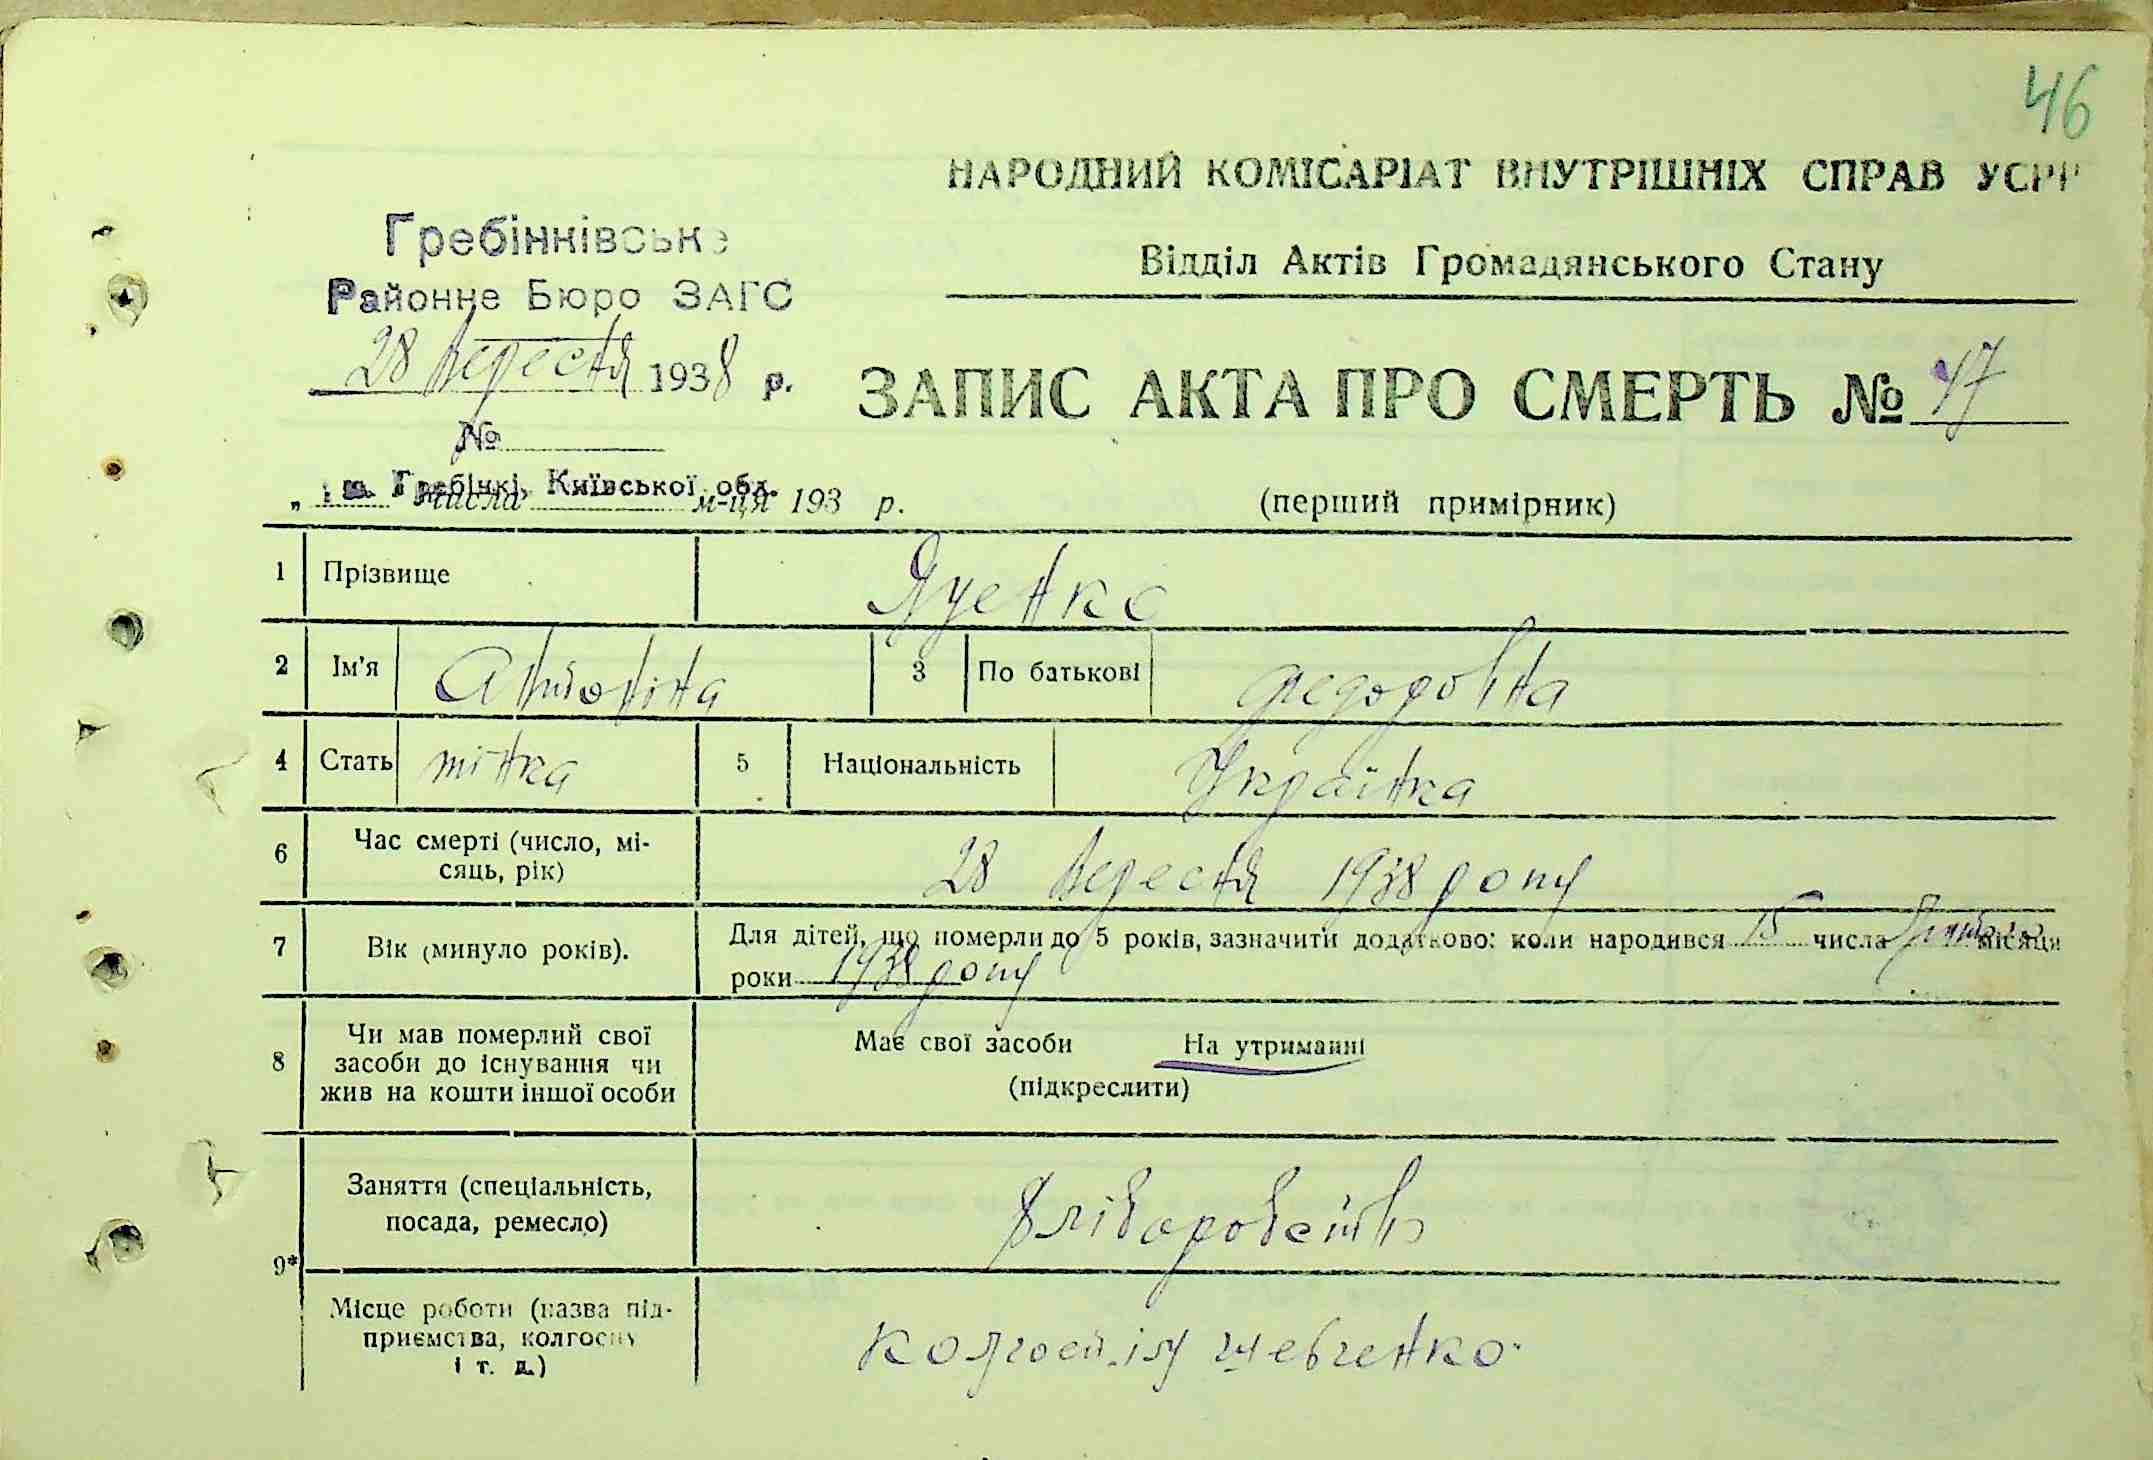 46
НАРОДНИЙ КОМІСАРІАТ ВНУТРІШНІХ СПРАВ УСРР
Відділ Актів Громадянського Стану
Гребінківське
Районне Бюро ЗАГС
28 вересня 1938 р.
№
м. Гребінкі, Київської обл.
ЗАПИС АКТА ПРО СМЕРТЬ № 47
„ числа м-ця 193 р.
(перший примірник)
1 Прізвище Яценко
2 Ім'я Антоніна 3 По батькові Федоровна
4 Стать жінка 5 Національність Українка
6 Час смерті (число, мі-
сяць, рік) 28 вересня 1938 року
7 Вік (минуло років). Для дітей, що померли до 5 років, зазначити додатково: коли народився 15 числа місяця
роки 1938 року
8 Чи мав померлий свої
засоби до існування чи
жив на кошти іншої особи
Має свої засоби На утриманні
(підкреслити)
9* Заняття (спеціальність,
посада, ремесло) Хліборобств
Місце роботи (назва під-
приємства, колгоспу
і т. д.) колгосп. ім Шевченко